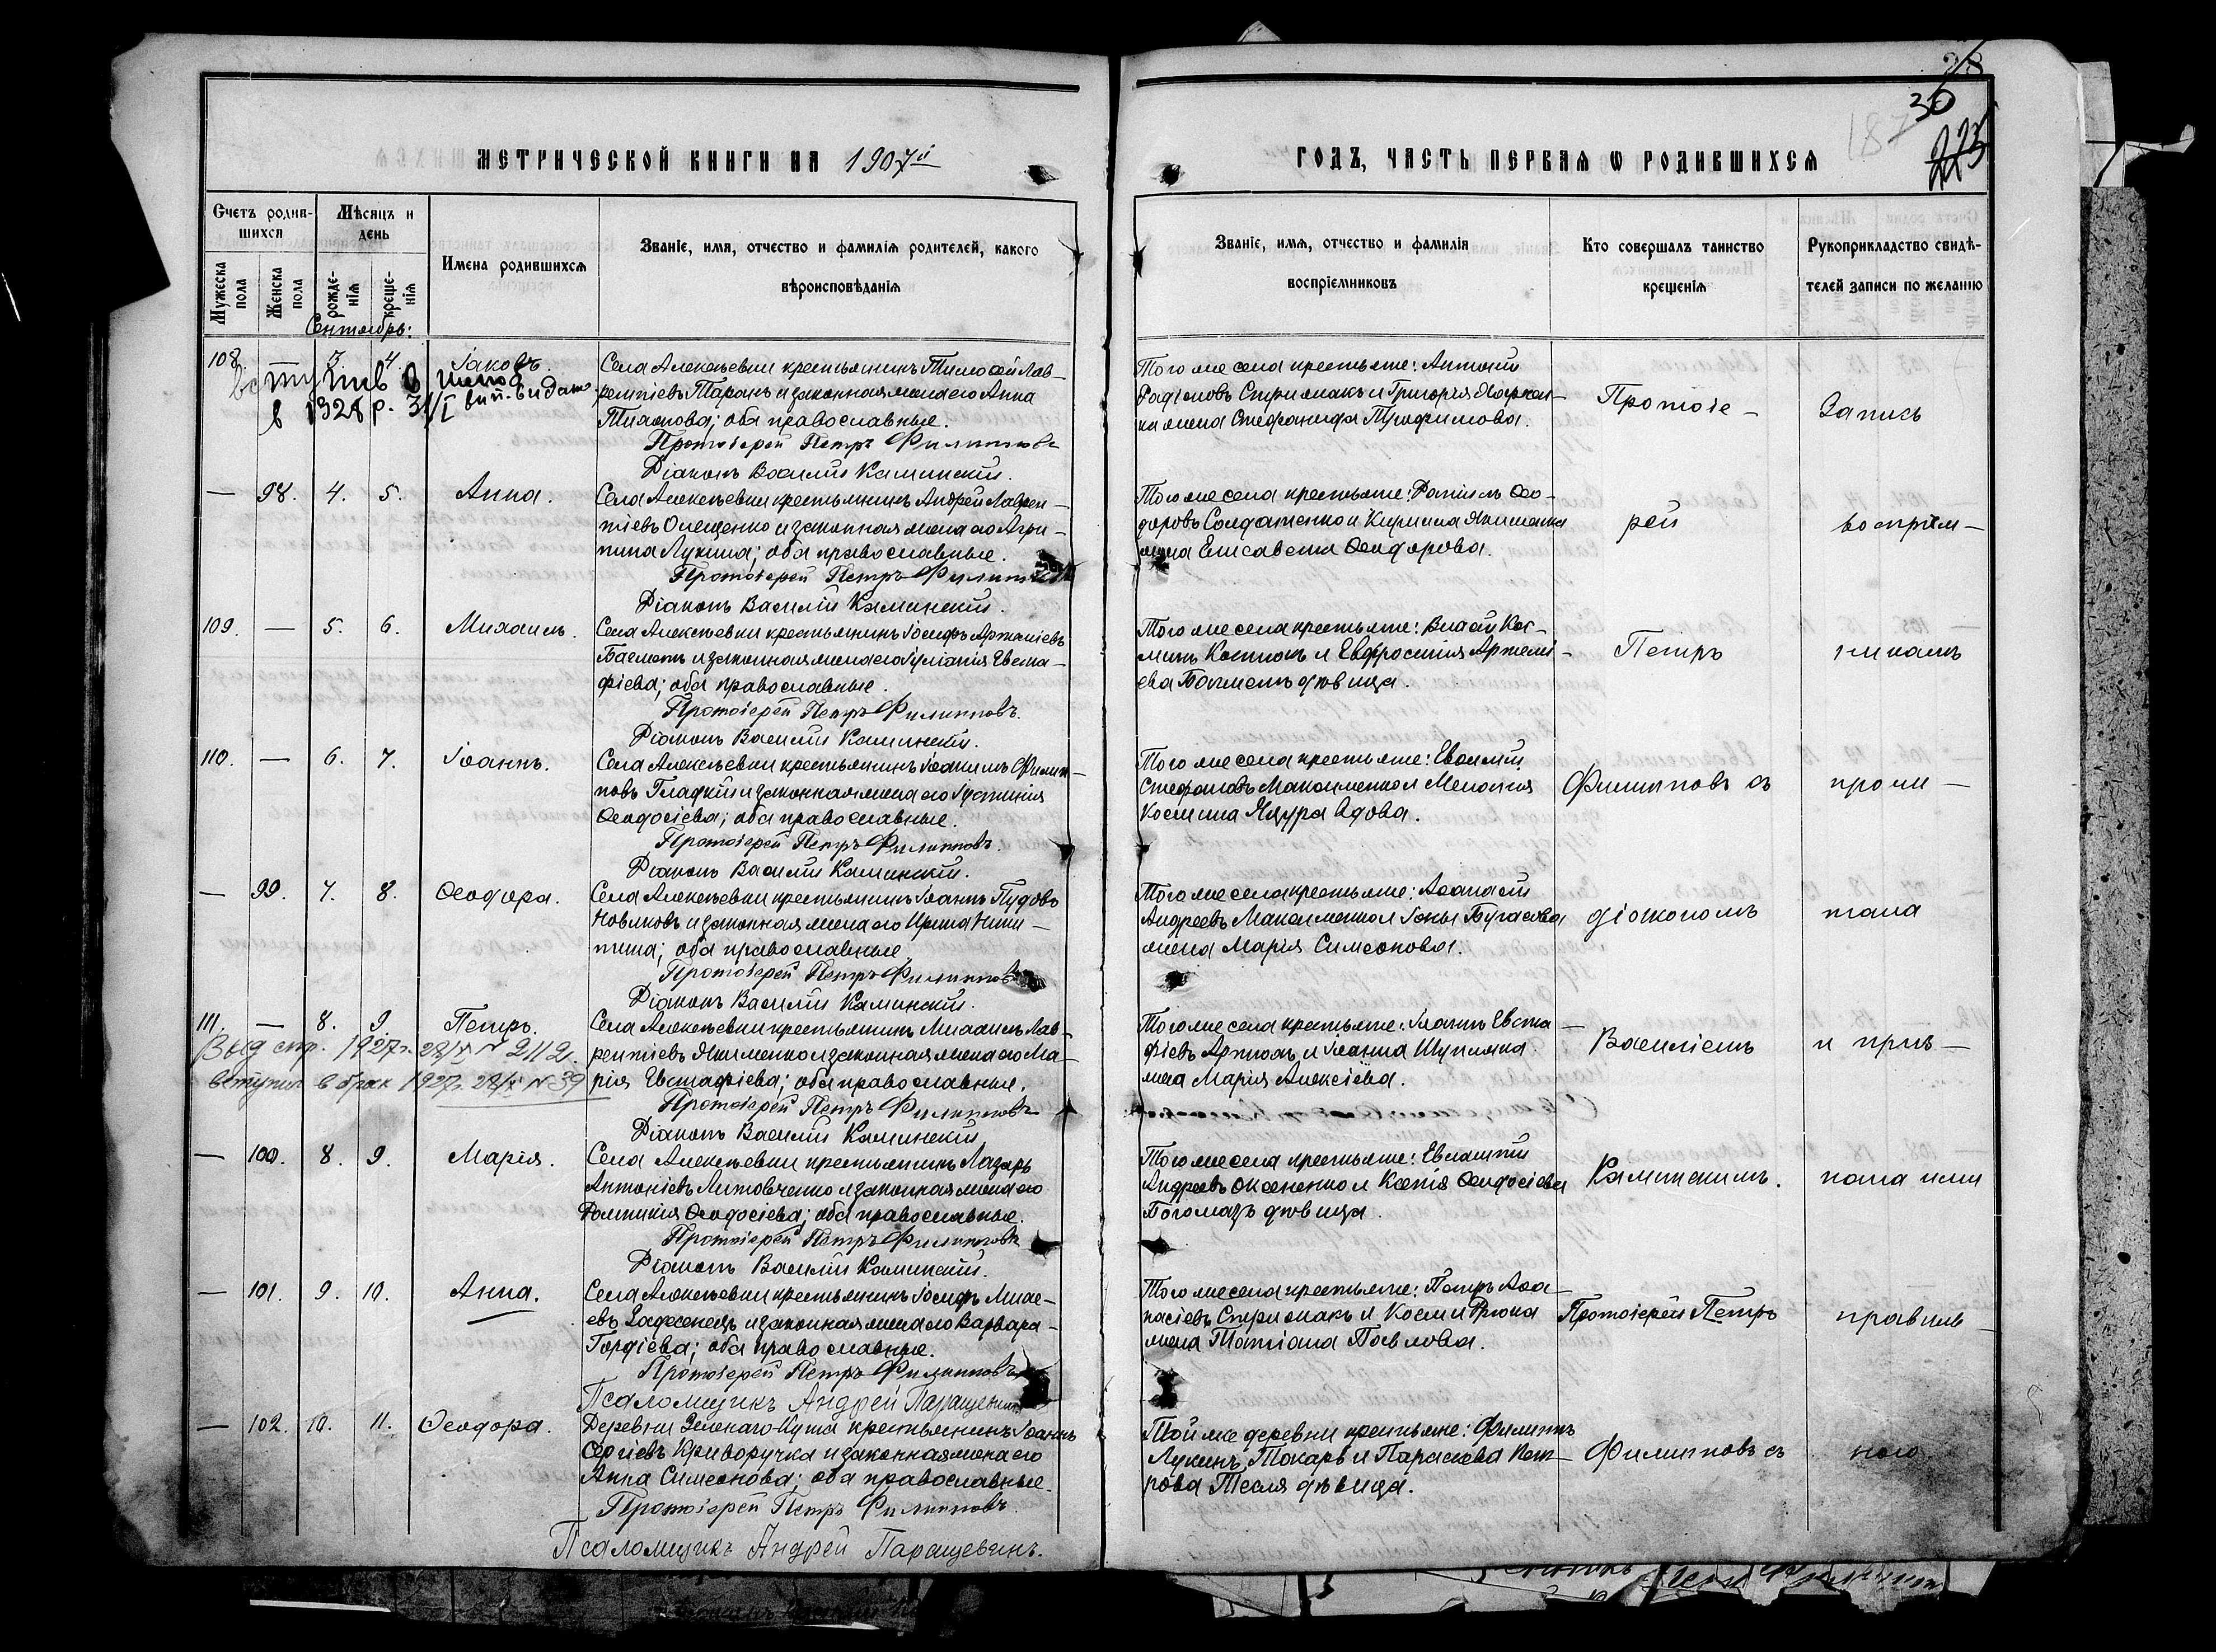 28
30
187
223
МЕТРИЧЕСКОЙ КНИГИ НА 1907й
ГОДЪ, ЧАСТЬ ПЕРВАЯ Ѡ РОДИВШИХСЯ
Счетъ родив-
шихся
Мужеска пола
Женска пола
Мѣсяцъ и
день
рожде-
нія
креще-
нія
Имена родившихся
Званіе, имя, отчество и фамилія родителей, какого
вѣроисповѣданія
Званіе, имя, отчество и фамилія
воспріемниковъ
Кто совершалъ таинство
крещенія
Рукоприкладство свидѣ-
телей записи по желанію
Сентябрь:
108. — 3. 4. Іаковъ.
вступив в шлюб
в 1928 р. 31/I вип. видано
Села Алексѣевки крестьянинъ Тимофей Лав-
рентіевъ Таранъ и законная жена его Анна
оба православные.
Протоіерей Петръ Филипповъ
Діаконъ Василій Каминскій.
Того же села крестьяне: Антоній
Стефанида Трофимова.
Протоіе-
Запись
— 98. 4. 5. Анна.
Села Алексѣевки крестьянинъ Андрей Лаврен-
тіевъ Олещенко и законная жена его Агри-
пина Лукина; оба православные.
Протоіерей Петръ
Діаконъ Василій Каминскій.
Того же села крестьяне: Даніилъ Ѳео-
доровъ Солдатенко и Кирилла Якименка
жена Елисавета Ѳеодорова.
рей
109. — 5. 6. Михаилъ.
Села Алексѣевки крестьянинъ Іосифъ Артеміевъ
и законная жена его Іуліанія Евста-
фіева; оба православные.
Протоіерей Петръ Филипповъ.
Діаконъ Василій Каминскій.
Того же села крестьяне: Власій Кос-
минъ и Евфросинія Артемі-
ева дѣвица.
Петръ
110. — 6. 7. Іоаннъ.
Села Алексѣевки крестьянинъ Іоакимъ Филип-
повъ Гладкій и законная жена его Іустинія
Ѳеодосіева; оба православные.
Протоіерей Петръ Филипповъ.
Діаконъ Василій Каминскій.
Того же села крестьяне: Евсевій
Стефановъ Максименко и Меланія
Космина Яцура вдова.
Филипповъ съ
прочи-
— 99. 7. 8. Ѳеодора.
Села Алексѣевки крестьянинъ Іоаннъ Пудовъ
Новиковъ и законная жена его Ирина Ники-
тина; оба православные
Протоіерей Петръ Филипповъ
Діаконъ Василій Каминскій.
Того же села крестьяне: Аѳанасій
Андреевъ Максименко и Іоны Бугаева
жена Марія Симеонова.
діакономъ
тана
111. — 8. 9. Петръ.
Выд спр. 1927г. 22/X N 2112.
вступил в брак 1927г. 22/X N 39
Села Алексѣевки крестьянинъ Михаилъ Лав-
рентіевъ Якименко и законная жена его Ма-
рія Евстафіева; оба православные.
Протоіерей Петръ Филипповъ
Діаконъ Василій Каминскій
Того же села крестьяне: Іоаннъ Евста-
фіевъ и Іоанна
жена Марія Алексіева.
Василіемъ
и приз-
— 100. 8. 9. Марія.
Села Алексѣевки крестьянинъ Лазарь
Антоніевъ Литовченко и законная жена его
Домникія Ѳеодосіева; оба православные.
Протоіерей Петръ Филипповъ
Діаконъ Василій Каминскій.
Того же села крестьяне: Евлампій
Андреевъ и Ксенія Ѳеодосіева
Богомазъ дѣвица.
Каминскимъ.
нана ими
— 101. 9. 10. Анна.
Села Алексѣевки крестьянинъ Іосифъ Михе-
евъ и законная жена его Варвара
Гордіева; оба православные.
Протоіерей Петръ Филипповъ
Псаломщикъ Андрей Паращевинъ
Того же села крестьяне: Петръ Аѳа-
насіевъ и Космы
жена Татіана Павлова.
Протоіерей Петръ
правиль-
— 102. 10. 11. Ѳеодора.
Деревни Зеленаго-Кута крестьянинъ Іоаннъ
Сергіевъ Криворучка и законная жена его
Анна Симеонова; оба православные.
Протоіерей Петръ Филипповъ
Псаломщикъ Андрей Паращевинъ.
Той же деревни крестьяне: Филиппъ
Лукинъ Токарь и Параскева Пет-
рова Тесля дѣвица.
Филипповъ съ
ною